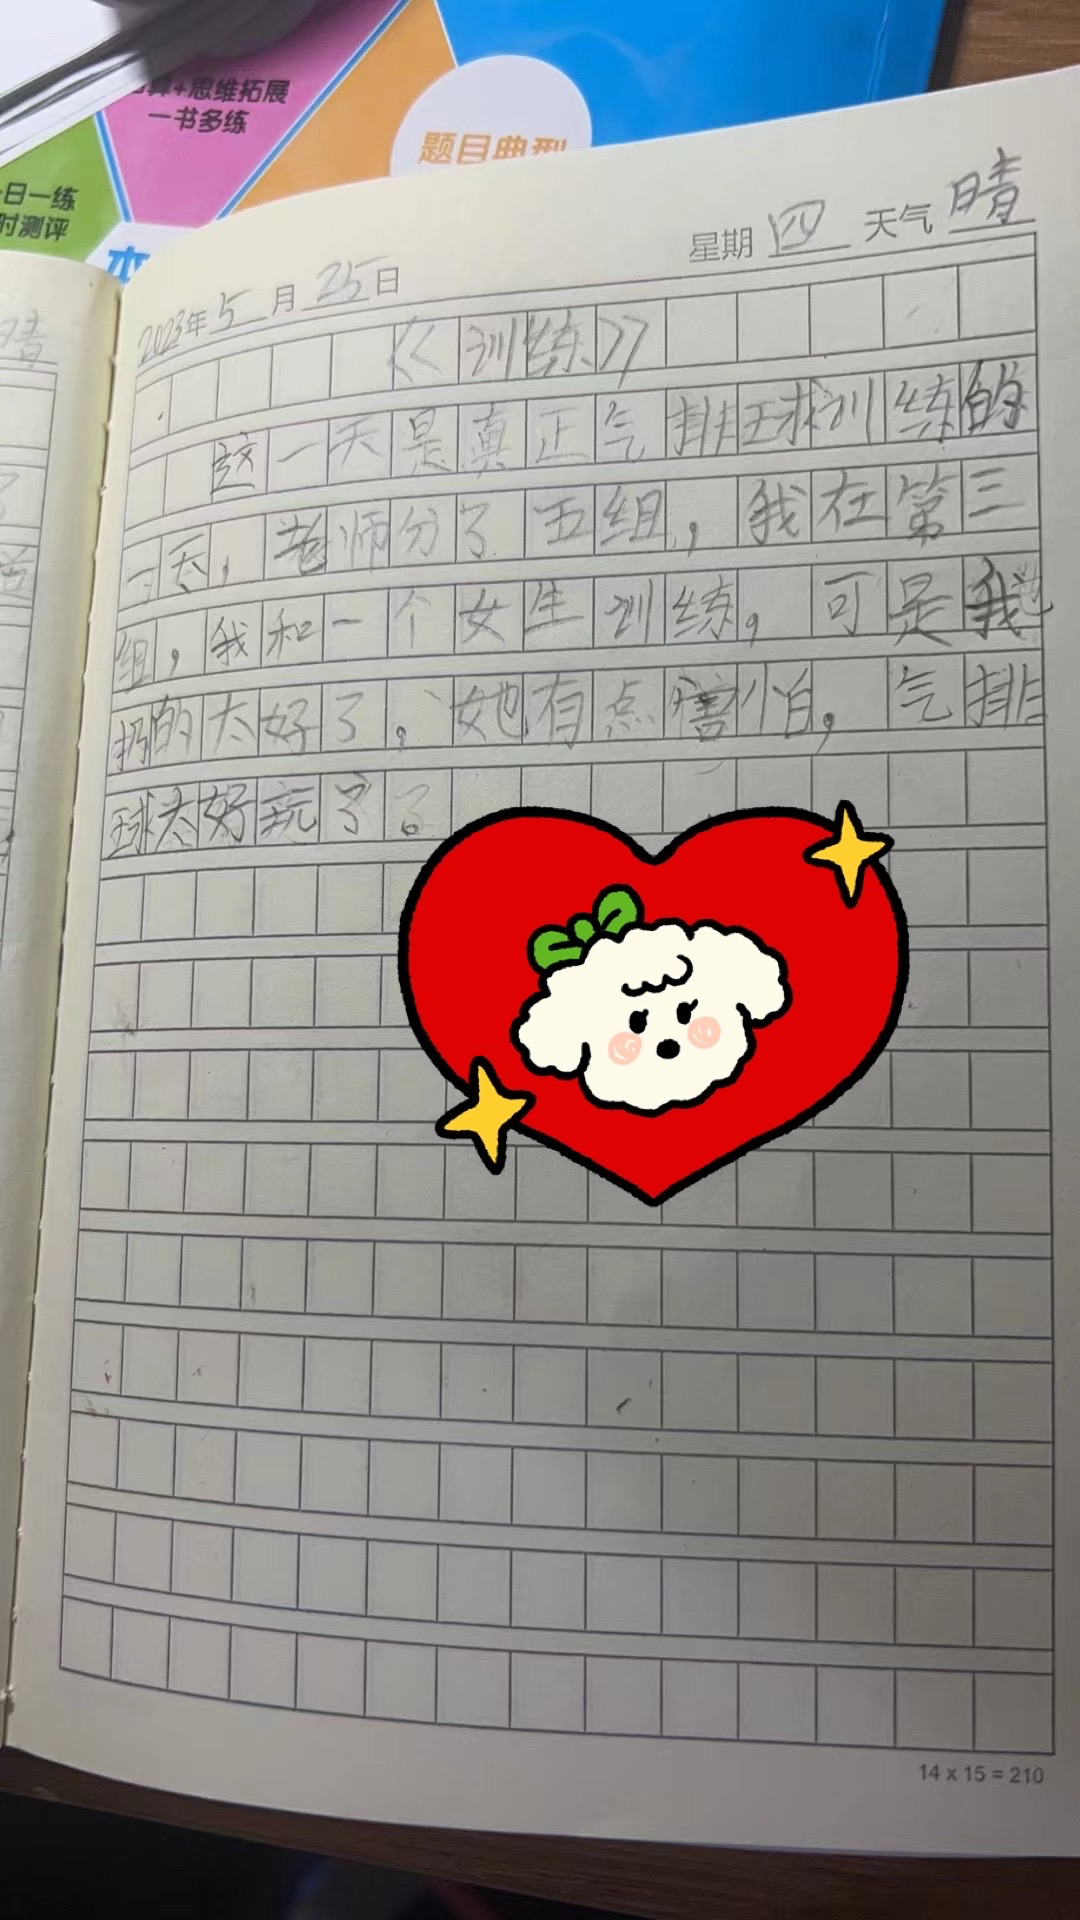 算+思维拓展
一书多练
题目典型
日一练
时测评
本
晴
2023年5月25日 星期四 天气晴
《训练》
这一天是真正气排球训练的
一天，老师分了五组，我在第三
组，我和一个女生训练。可是我
扔的太好了，她有点害怕，气排
球太好玩了。
14 x 15 = 210